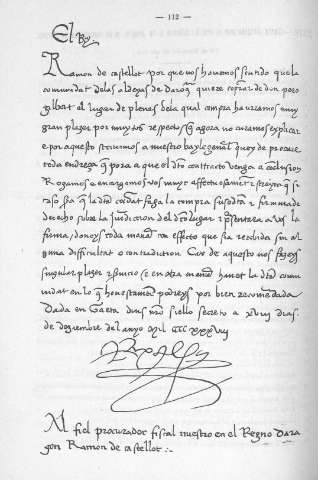 — 112 —
El Rey
Ramon de castellot por que nos havemos sentido que la
comunidat delas aldeyas de Daroqa quiere comprar de don pero
gilbert el lugar de plenes dela qual compra hauriamos muy
gran plazer por muytos respectos que agora no curamos explicar
e por aquesto screuimos a nuestro bayle general que y de procure
toda endreça que pora a que el dito contracto venga a conclusion
Rogamos e encargamos vos muy affectuosament e streytament que si
caso sera que la dita comunidat faga la compra susodita e firma de
derecho sobre la juridicion del dito lugar e presentara a vos la
firma, doneys toda manera con effecto que sia recebida sin al
guna difficultat o contradiction Car de aquesto nos fareys
singular plazer e servicio e en otra manera hauet la dita comu
nidat en lo que honestament podreys por bien recomendada
Dada en Gaeta dius nuestro siello secreto a xviij dias
de deziembre del anyo Mil CCCC xxxvij
Rex Alfonsus
Al fiel procurador fiscal nuestro en el Regno Dara
gon Ramon de castellot :-